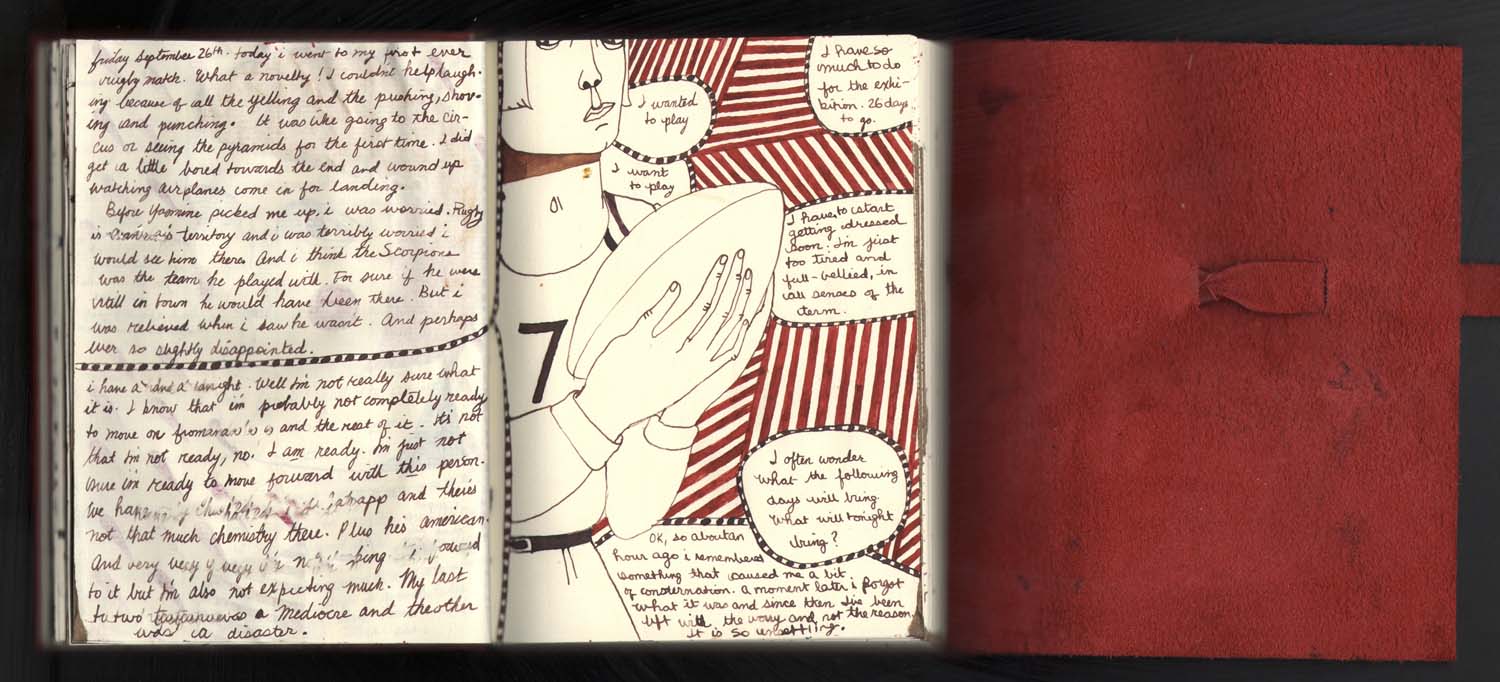 friday September 26th. today i went to my first ever
rugby match. What a novelty! I couldnt help laugh-
ing because of all the yelling and the pushing, shov-
ing and punching. It was like going to the cir-
cus or seeing the pyramids for the first time. I did
get a little bored towards the end and wound up
watching airplanes come in for landing.
Before Yasmine picked me up, i was worried. Rugby
is territory and i was terribly worried i
would see him there. And i think the Scorpions
was the team he played with. For sure if he were
still in town he would have been there. But i
was relieved when i saw he wasnt. And perhaps
ever so slightly disappointed.
i have a and a tonight. Well Im not really sure what
it is. I know that im probably not completely ready
to move on from and the rest of it. Its not
that Im not ready, no. I am ready. Im just not
sure im ready to move forward with this person.
We have and theres
not that much chemistry there. Plus hes american.
And very very very forward
to it but Im also not expecting much. My last
two was a mediocre and the other
was a disaster.
I wanted
to play
I want
to play
01
7
I have so
much to do
for the exhi-
bition. 26 days
to go.
I have to start
getting dressed
soon. Im just
too tired and
full-bellied, in
all senses of the
term.
I often wonder
what the following
days will bring.
What will tonight
bring?
OK, so about an
hour ago i remembered
something that caused me a bit
of consternation. A moment later i forgot
what it was and since then Ive been
left with the worry and not the reason
it is so unsettling.